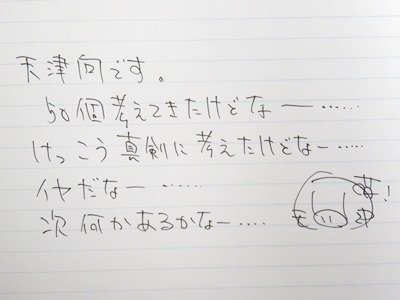 天津向です。
50個考えてきたけどなー……
けっこう真剣に考えたけどなー……
イヤだなー……
次何かあるかなー……